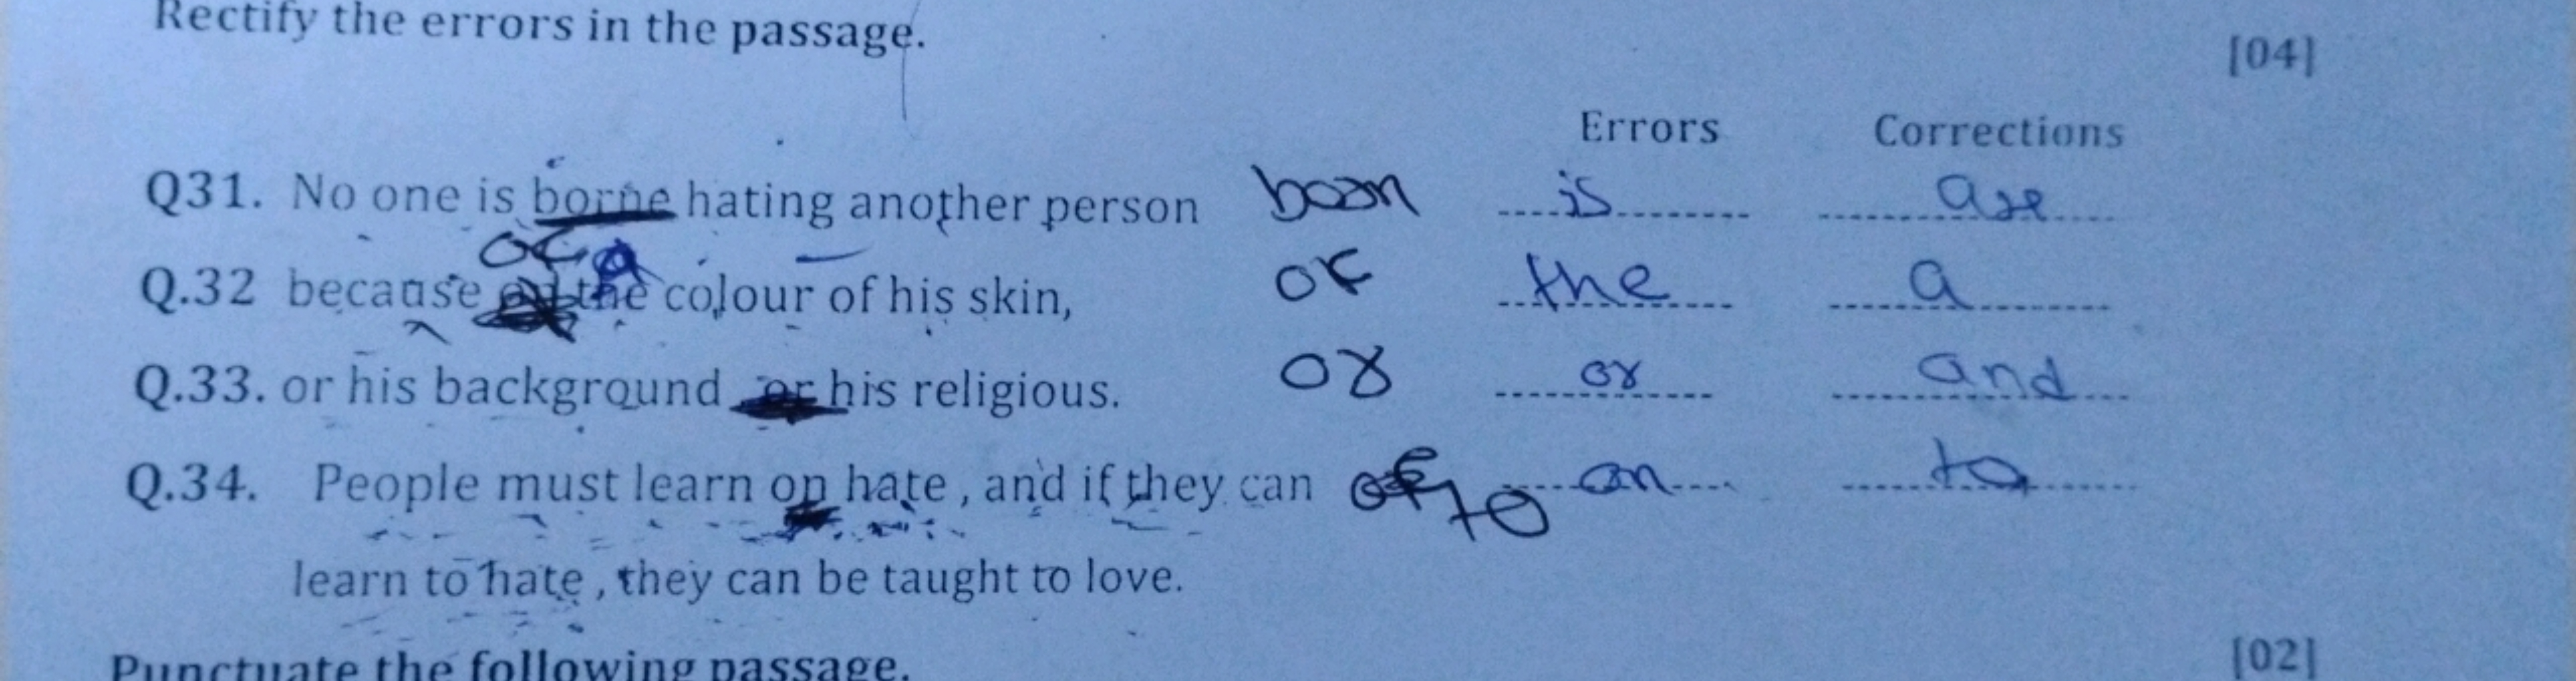 Rectify the errors in the passage.
[04]
Errors Corrections
Q31. No one is borne hating another person born is are
of a
Q.32 because the colour of his skin, of the a
Q.33. or his background or his religious. or or and
Q.34. People must learn on hate, and if they can to on to
learn to hate, they can be taught to love.
Punctuate the following passage.
[02]